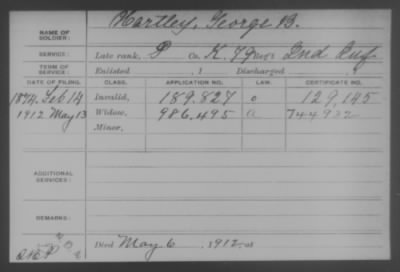 NAME OF SOLDIER: Hartley, George B.
SERVICE: Late rank, P Co. K, 79 Reg't Ind Inf
TERM OF SERVICE: Enlisted , 1 Discharged
DATE OF FILING. CLASS. APPLICATION NO. LAW. CERTIFICATE NO.
1874, Feb 14 Invalid, 189.827 o 129,145
1912 May 13 Widow, 986,495 a 744932
Minor,
ADDITIONAL SERVICES:
REMARKS:
Died May 6, 1912, at